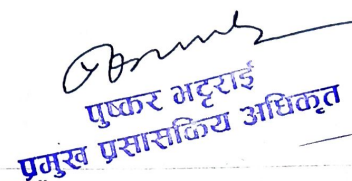 पुष्कर भट्टराई
प्रमुख प्रसासकिय अधिकृत